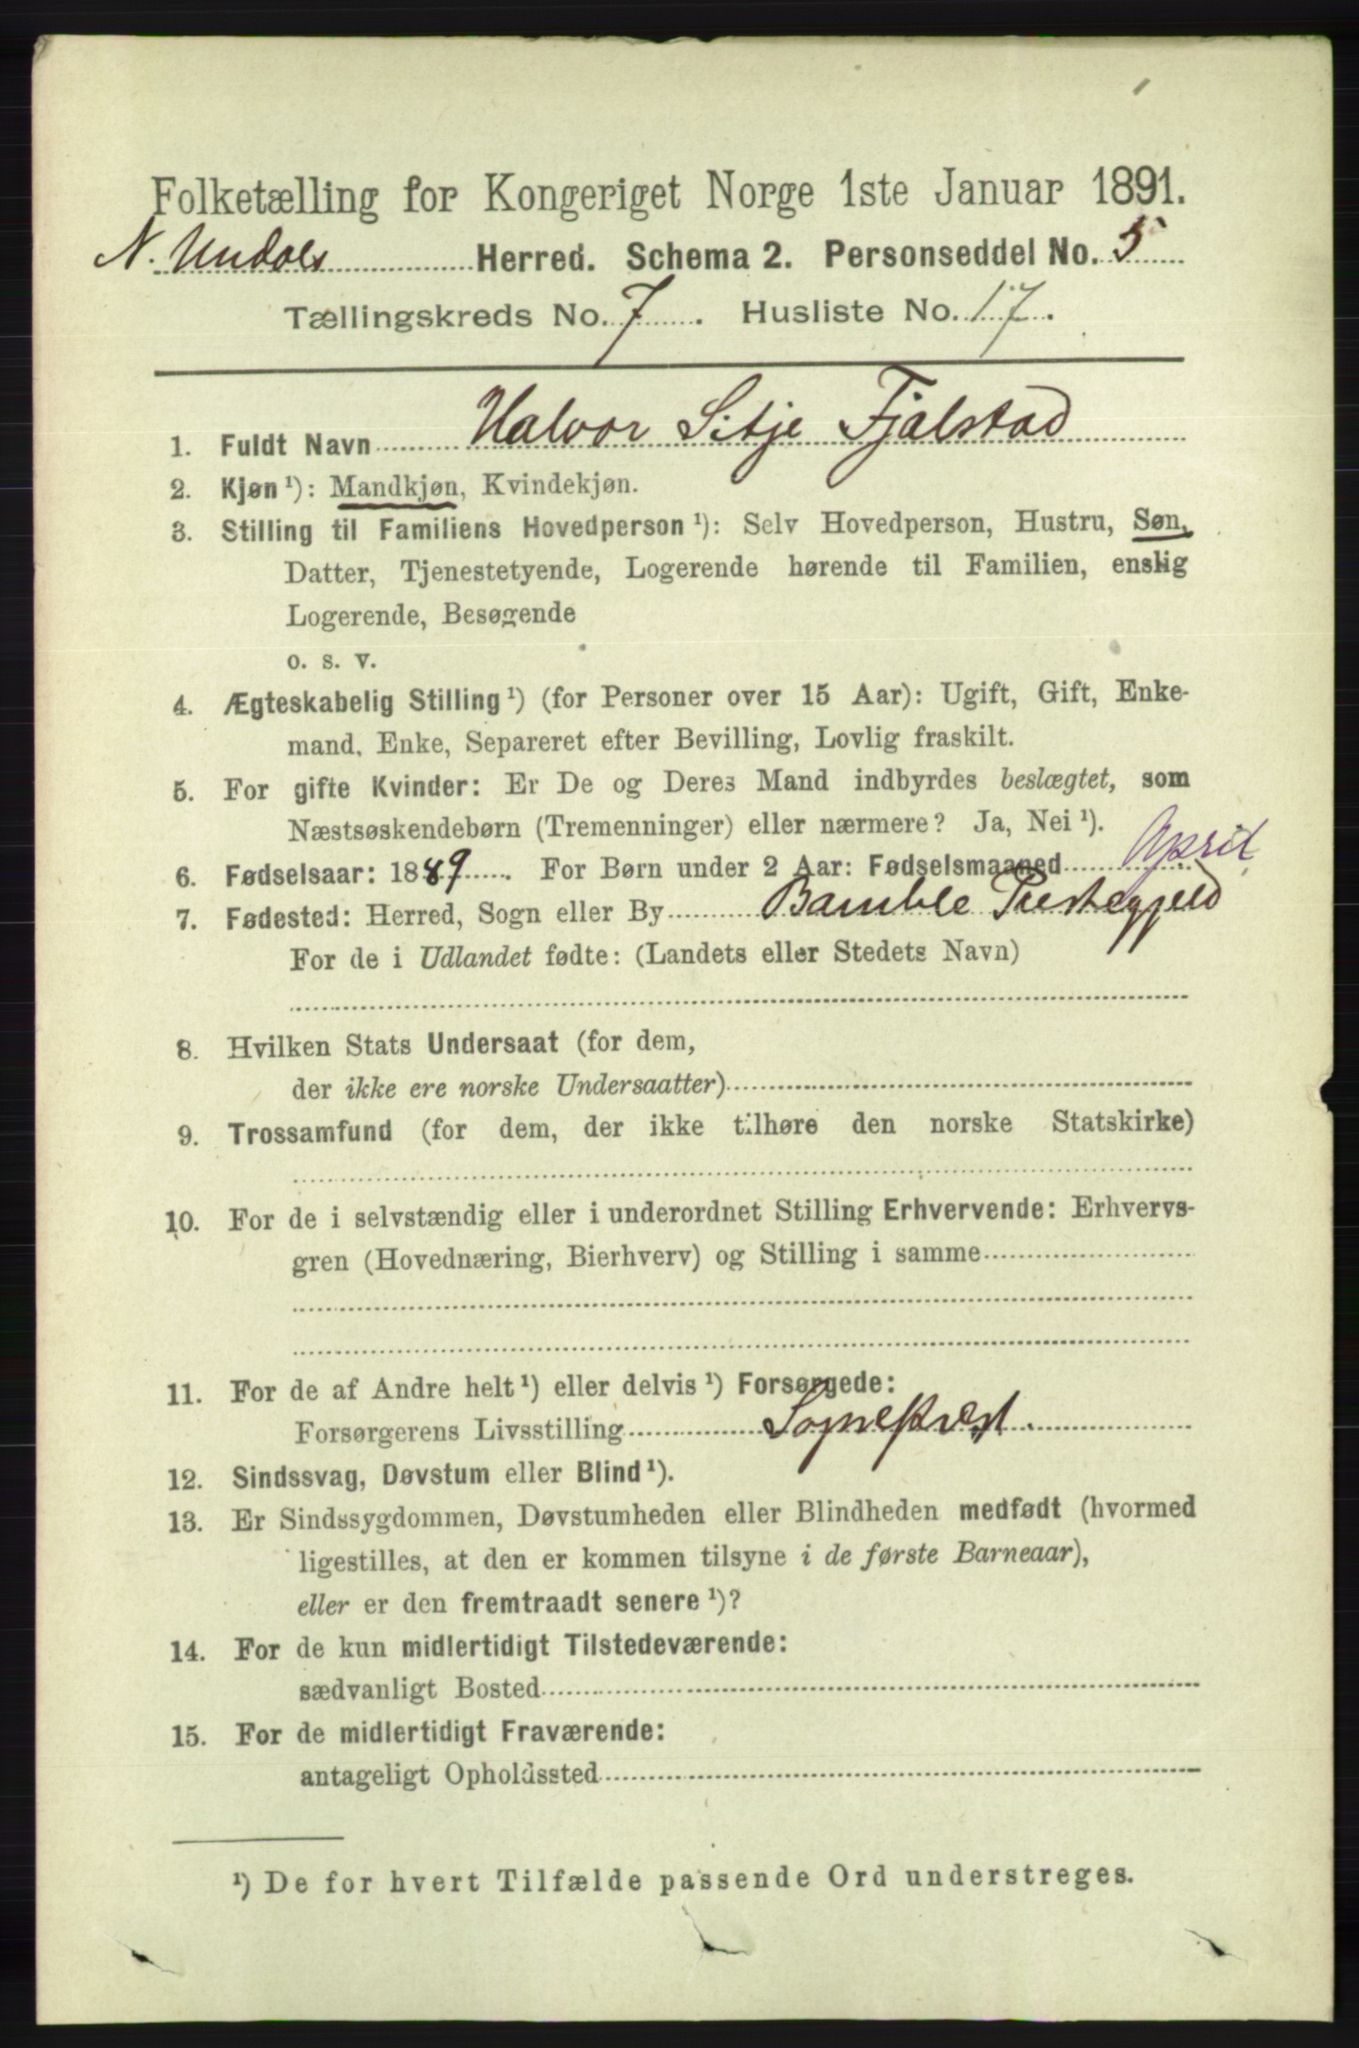 Folketælling for Kongeriget Norge 1ste Januar 1891.
N. Undals Herred. Schema 2. Personseddel No. 5
Tællingskreds No. 7. Husliste No. 17.
1. Fuldt Navn Halvor Sitje Fjalstad
2. Kjøn ¹): Mandkjøn, Kvindekjøn.
3. Stilling til Familiens Hovedperson ¹): Selv Hovedperson, Hustru, Søn,
Datter, Tjenestetyende, Logerende hørende til Familien, enslig
Logerende, Besøgende
o. s. v.
4. Ægteskabelig Stilling ¹) (for Personer over 15 Aar): Ugift, Gift, Enke-
mand, Enke, Separeret efter Bevilling, Lovlig fraskilt.
5. For gifte Kvinder: Er De og Deres Mand indbyrdes beslægtet, som
Næstsøskendebørn (Tremenninger) eller nærmere? Ja, Nei ¹).
6. Fødselsaar: 1889. For Børn under 2 Aar: Fødselsmaaned April
7. Fødested: Herred, Sogn eller By Bamble Prestegjeld
For de i Udlandet fødte: (Landets eller Stedets Navn)
8. Hvilken Stats Undersaat (for dem,
der ikke ere norske Undersaatter)
9. Trossamfund (for dem, der ikke tilhøre den norske Statskirke)
10. For de i selvstændig eller i underordnet Stilling Erhvervende: Erhvervs-
gren (Hovednæring, Bierhverv) og Stilling i samme
11. For de af Andre helt ¹) eller delvis ¹) Forsørgede:
Forsørgerens Livsstilling Sogneprest.
12. Sindssvag, Døvstum eller Blind ¹).
13. Er Sindssygdommen, Døvstumheden eller Blindheden medfødt (hvormed
ligestilles, at den er kommen tilsyne i de første Barneaar),
eller er den fremtraadt senere ¹)?
14. For de kun midlertidigt Tilstedeværende:
sædvanligt Bosted
15. For de midlertidigt Fraværende:
antageligt Opholdssted
¹) De for hvert Tilfælde passende Ord understreges.